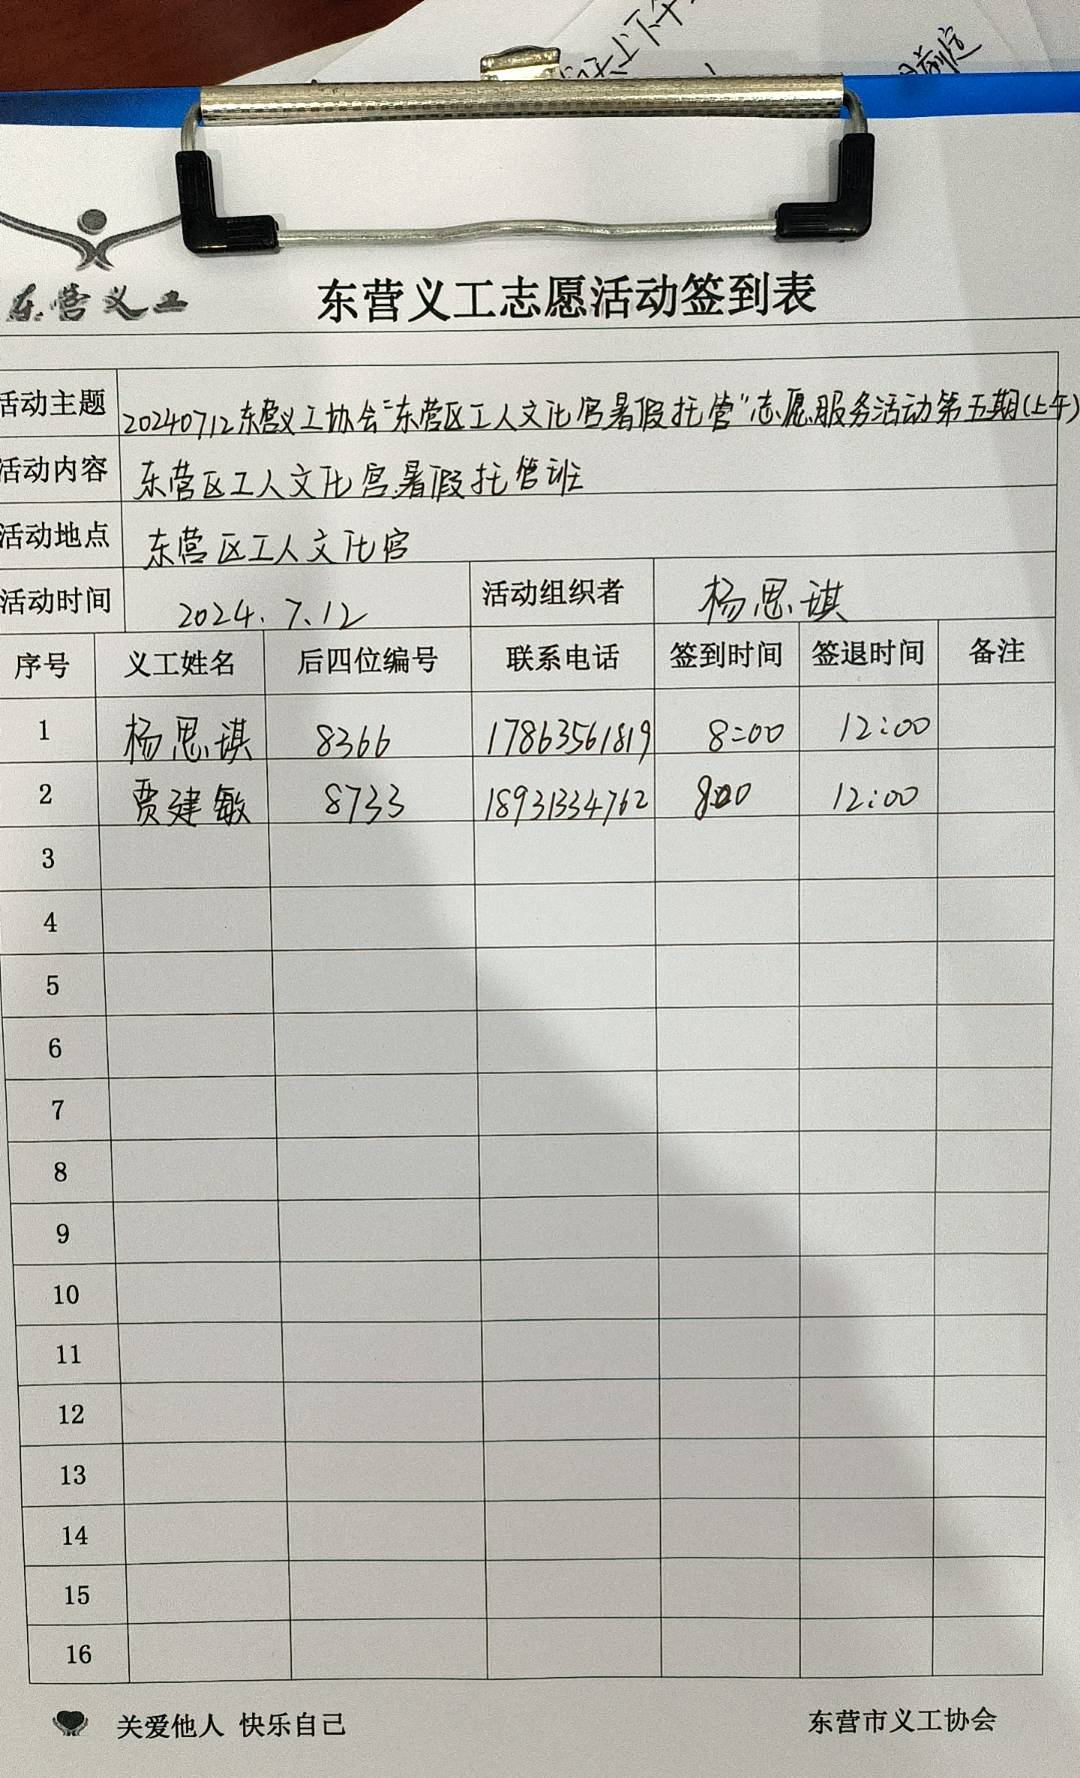 上下午
前定
东营义工
东营义工志愿活动签到表
活动主题 20240712东营义工协会“东营区工人文化宫暑假托管”志愿服务活动第五期(上午)
活动内容 东营区工人文化宫暑假托管班
活动地点 东营区工人文化宫
活动时间 2024.7.12 活动组织者 杨思琪
序号 义工姓名 后四位编号 联系电话 签到时间 签退时间 备注
1 杨思琪 8366 17863561819 8:00 12:00
2 贾建敏 8733 18931334762 8:00 12:00
3
4
5
6
7
8
9
10
11
12
13
14
15
16
关爱他人 快乐自己 东营市义工协会